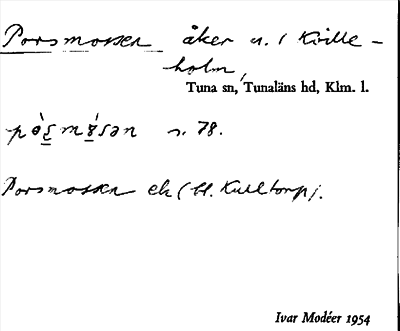 Porsmossen åker n. / Kville-
holm,
Tuna sn, Tunaläns hd, Klm. l.
s. 78.
Porsmossen ek (bl. Kulltorp).
Ivar Modéer 1954